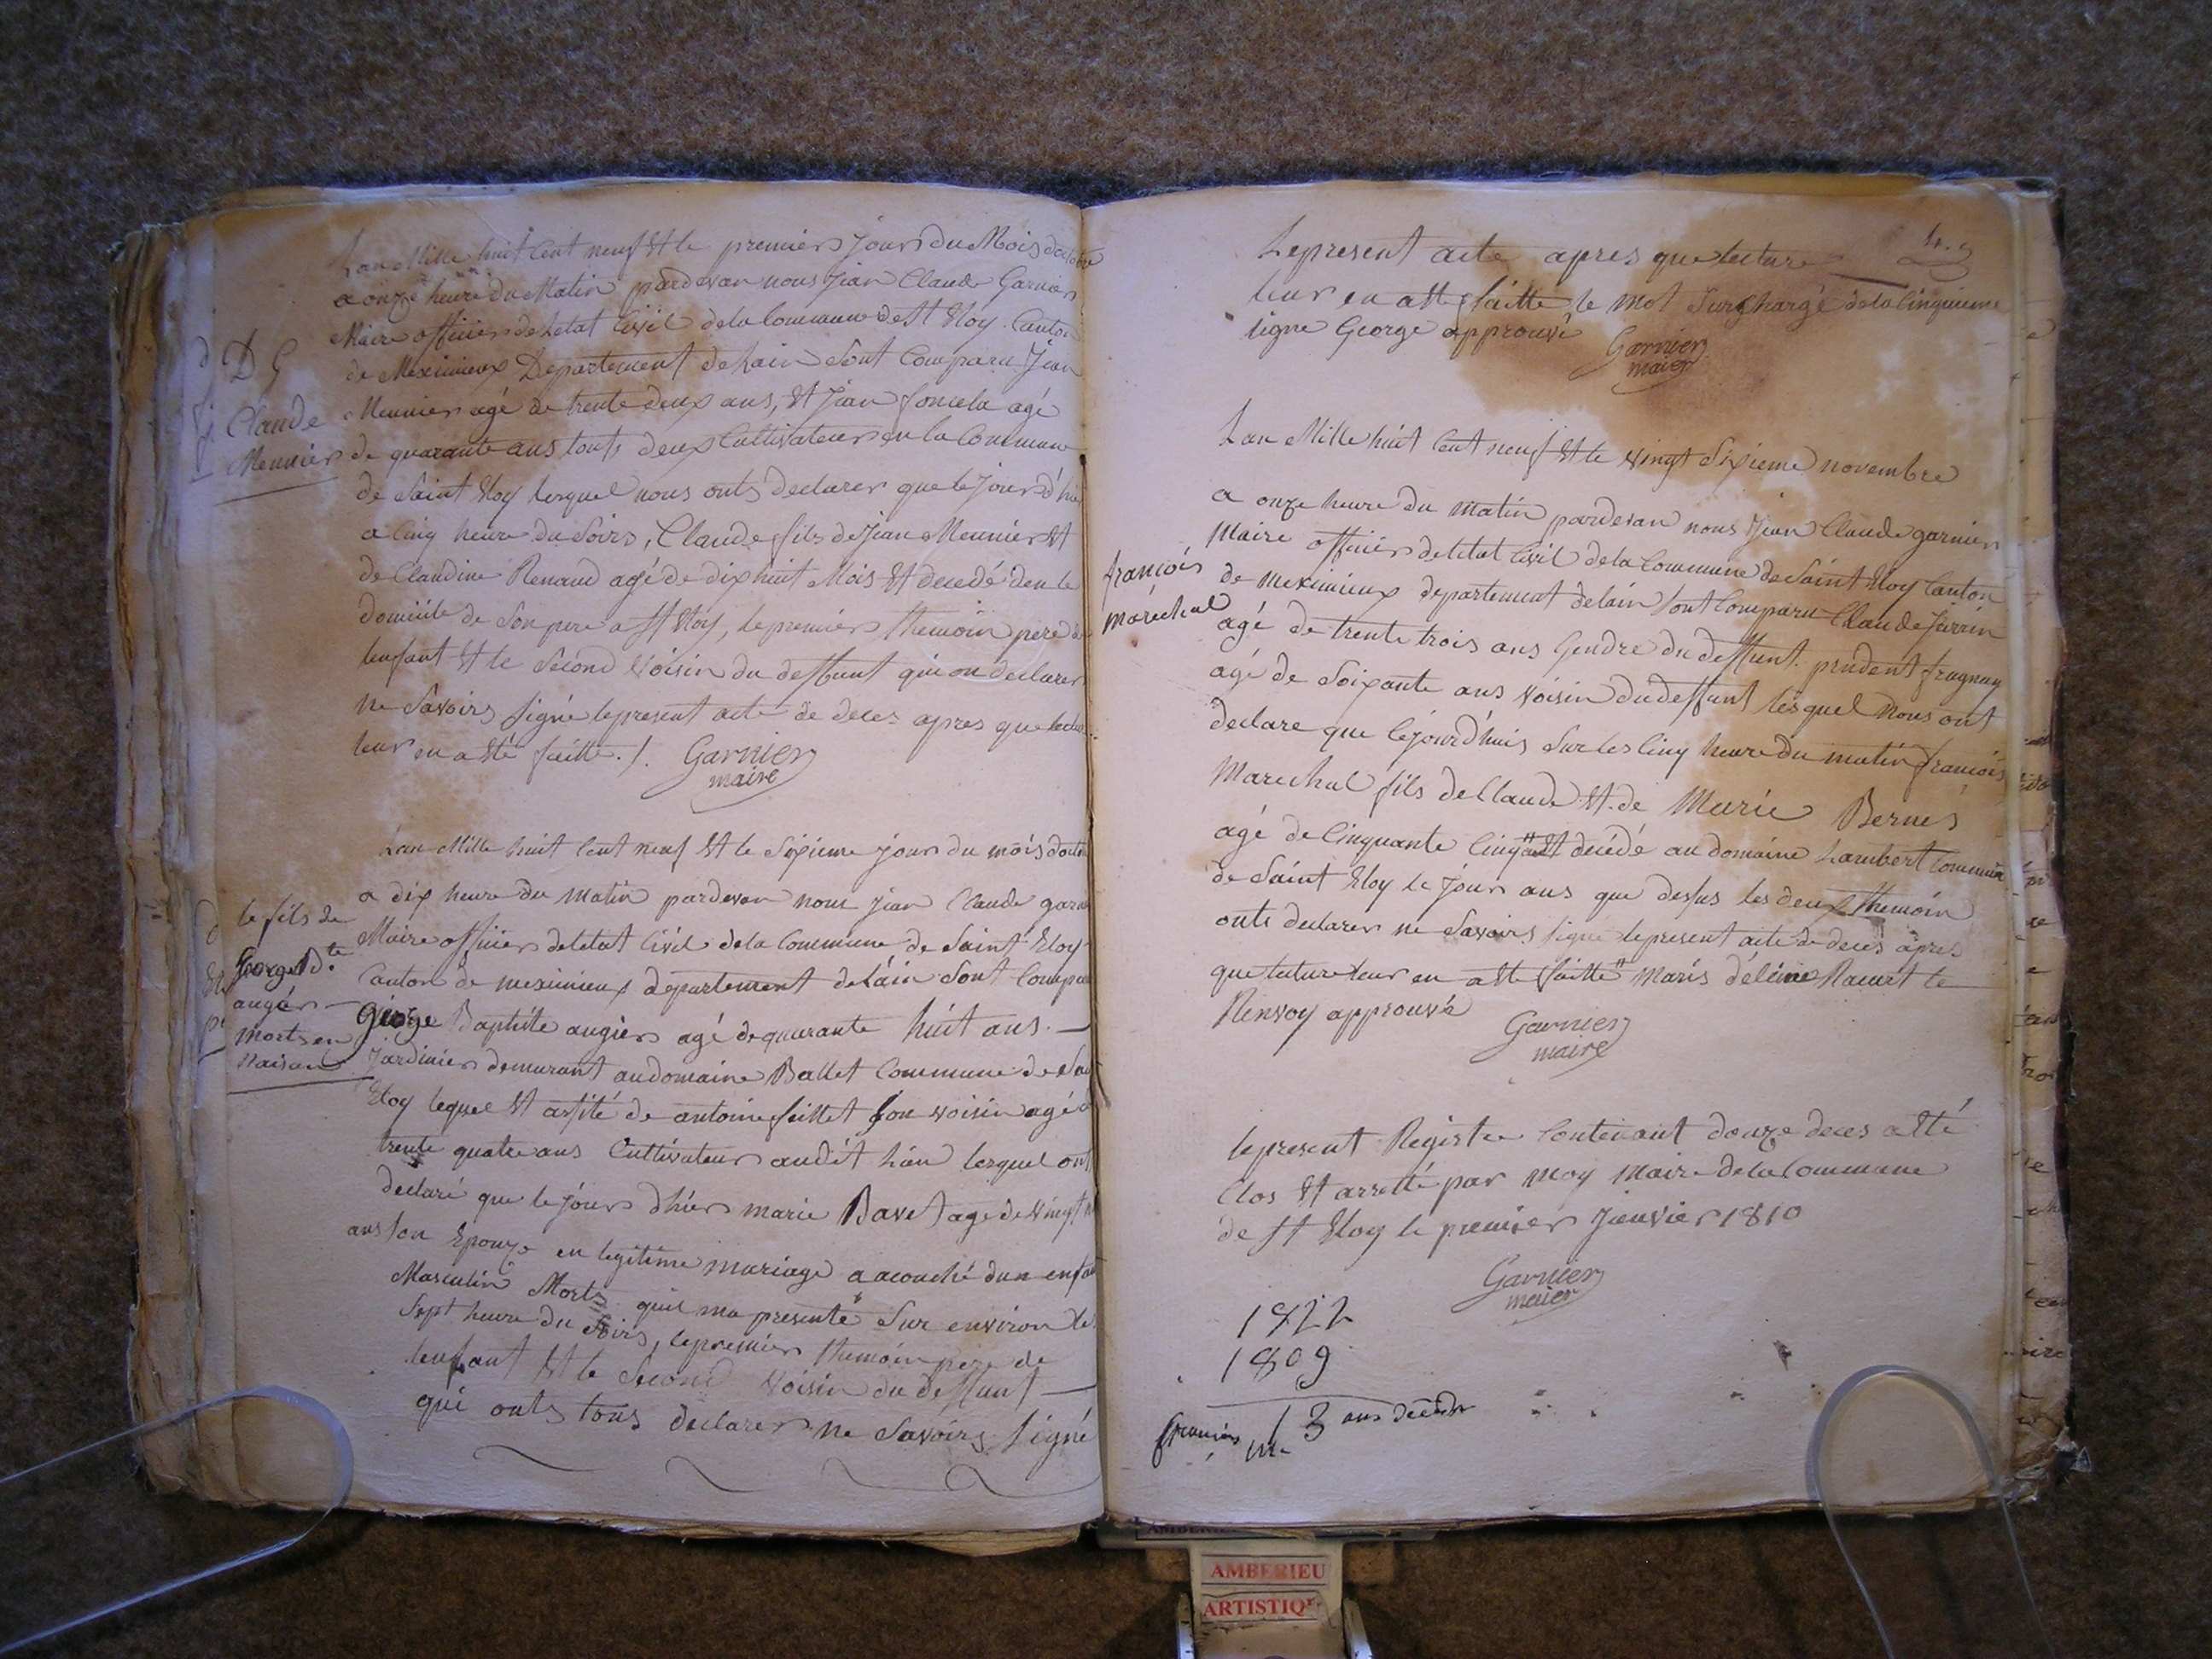 Lan Mille huit Cent neuf Et le premiers Jours du Mois doctobre
a onze heure du Matin pardevan nous Jean Claude Garnier
Maire officier de Letat Civil de la Commune de St Eloy Canton
de Meximieux Departement de Lain Sont Comparu Jean
Meunier agé de trente deux ans, Et Jean
agé
de quarante ans touts deux Cultivateurs en la Commune
de Saint Eloy lesquel nous onts declarer que le Jour d'hier
a Cinq heure du Soirs, Claude fils de Jean Meunier Et
de Claudine Renaud agé de dix huit Mois Et decedé den le
domicile de Son pere a St Eloy, le premiers themoin pere de
lenfant Et le Second Voisin du deffunt qui on declarer
ne Savoirs signé le present acte de deces apres que lecture
leur en a Eté faitte ./. Garnier
maire
D G
Claude
Meunier
Lan Mille huit Cent neuf Et le Sixieme jours du mois doctobre
a dix heure du matin pardevan nous jean Claude garnier
Maire officier de letat Civil de la Commune de Saint Eloy
Canton de meximieux departement de Lain Sont Comparu
George Baptiste augier agé de quarante huit ans
Jardinier demurant au domaine Ballet Commune de Saint
Eloy lequel Et asisté de antoine faillet son voisin agé de
trente quatre ans Cultivateur audit Lieu lesquel ont
declaré que le jours dhiers marie Bavet age de vingt
ans son Epouze en legitime mariage a acouché dun enfant
Masculin Morts quil ma presenté Sur environ les
Sept heure du Soirs, le premier themoin pere de
lenfant Et le Second Voisin du deffunt
qui onts tous declarer ne Savoirs signé
le fils de
George Bte
augier
morts en
naisan
Le present acte apres que lecture
leur en a Eté faitte le mot Surchargé de la Cinquieme
ligne George approuvé
Garnier
maier
Lan Mille huit Cent neuf Et le vingt Sixieme novembre
a onze heure du matin pardevan nous Jean Claude garnier
Maire officier de letat Civil de la Commune de Saint Eloy Canton
de meximieux departement de lain sont Comparu Claude Jarrin
agé de trente trois ans Gendre du deffunt prudent fragnay
agé de Soixante ans voisin du deffunt lesquel nous ont
declare que cejourdhuis Sur les Cinq heure du matin francois
Marechal fils de Claude Et de Marie Bernes
agé de Cinquante Cinq ans Et decédé au domaine Lambert Commune
de Saint Eloy le Jour ans que desus les deux themoin
onts declarer ne Savoirs signé le present acte de decés apres
que lecture leur en a Eté faitte maris déléine Racurt le
Renvoy approuvé
Garnier
maire
francois
marechal
le present Registre Contenant douze deces a Eté
Clos Et arretté par moy Maire de la Commune
de St Eloy le premier Jenvier 1810
Garnier
maier
1822
1809
13 ans
AMBERIEU
ARTISTIQ